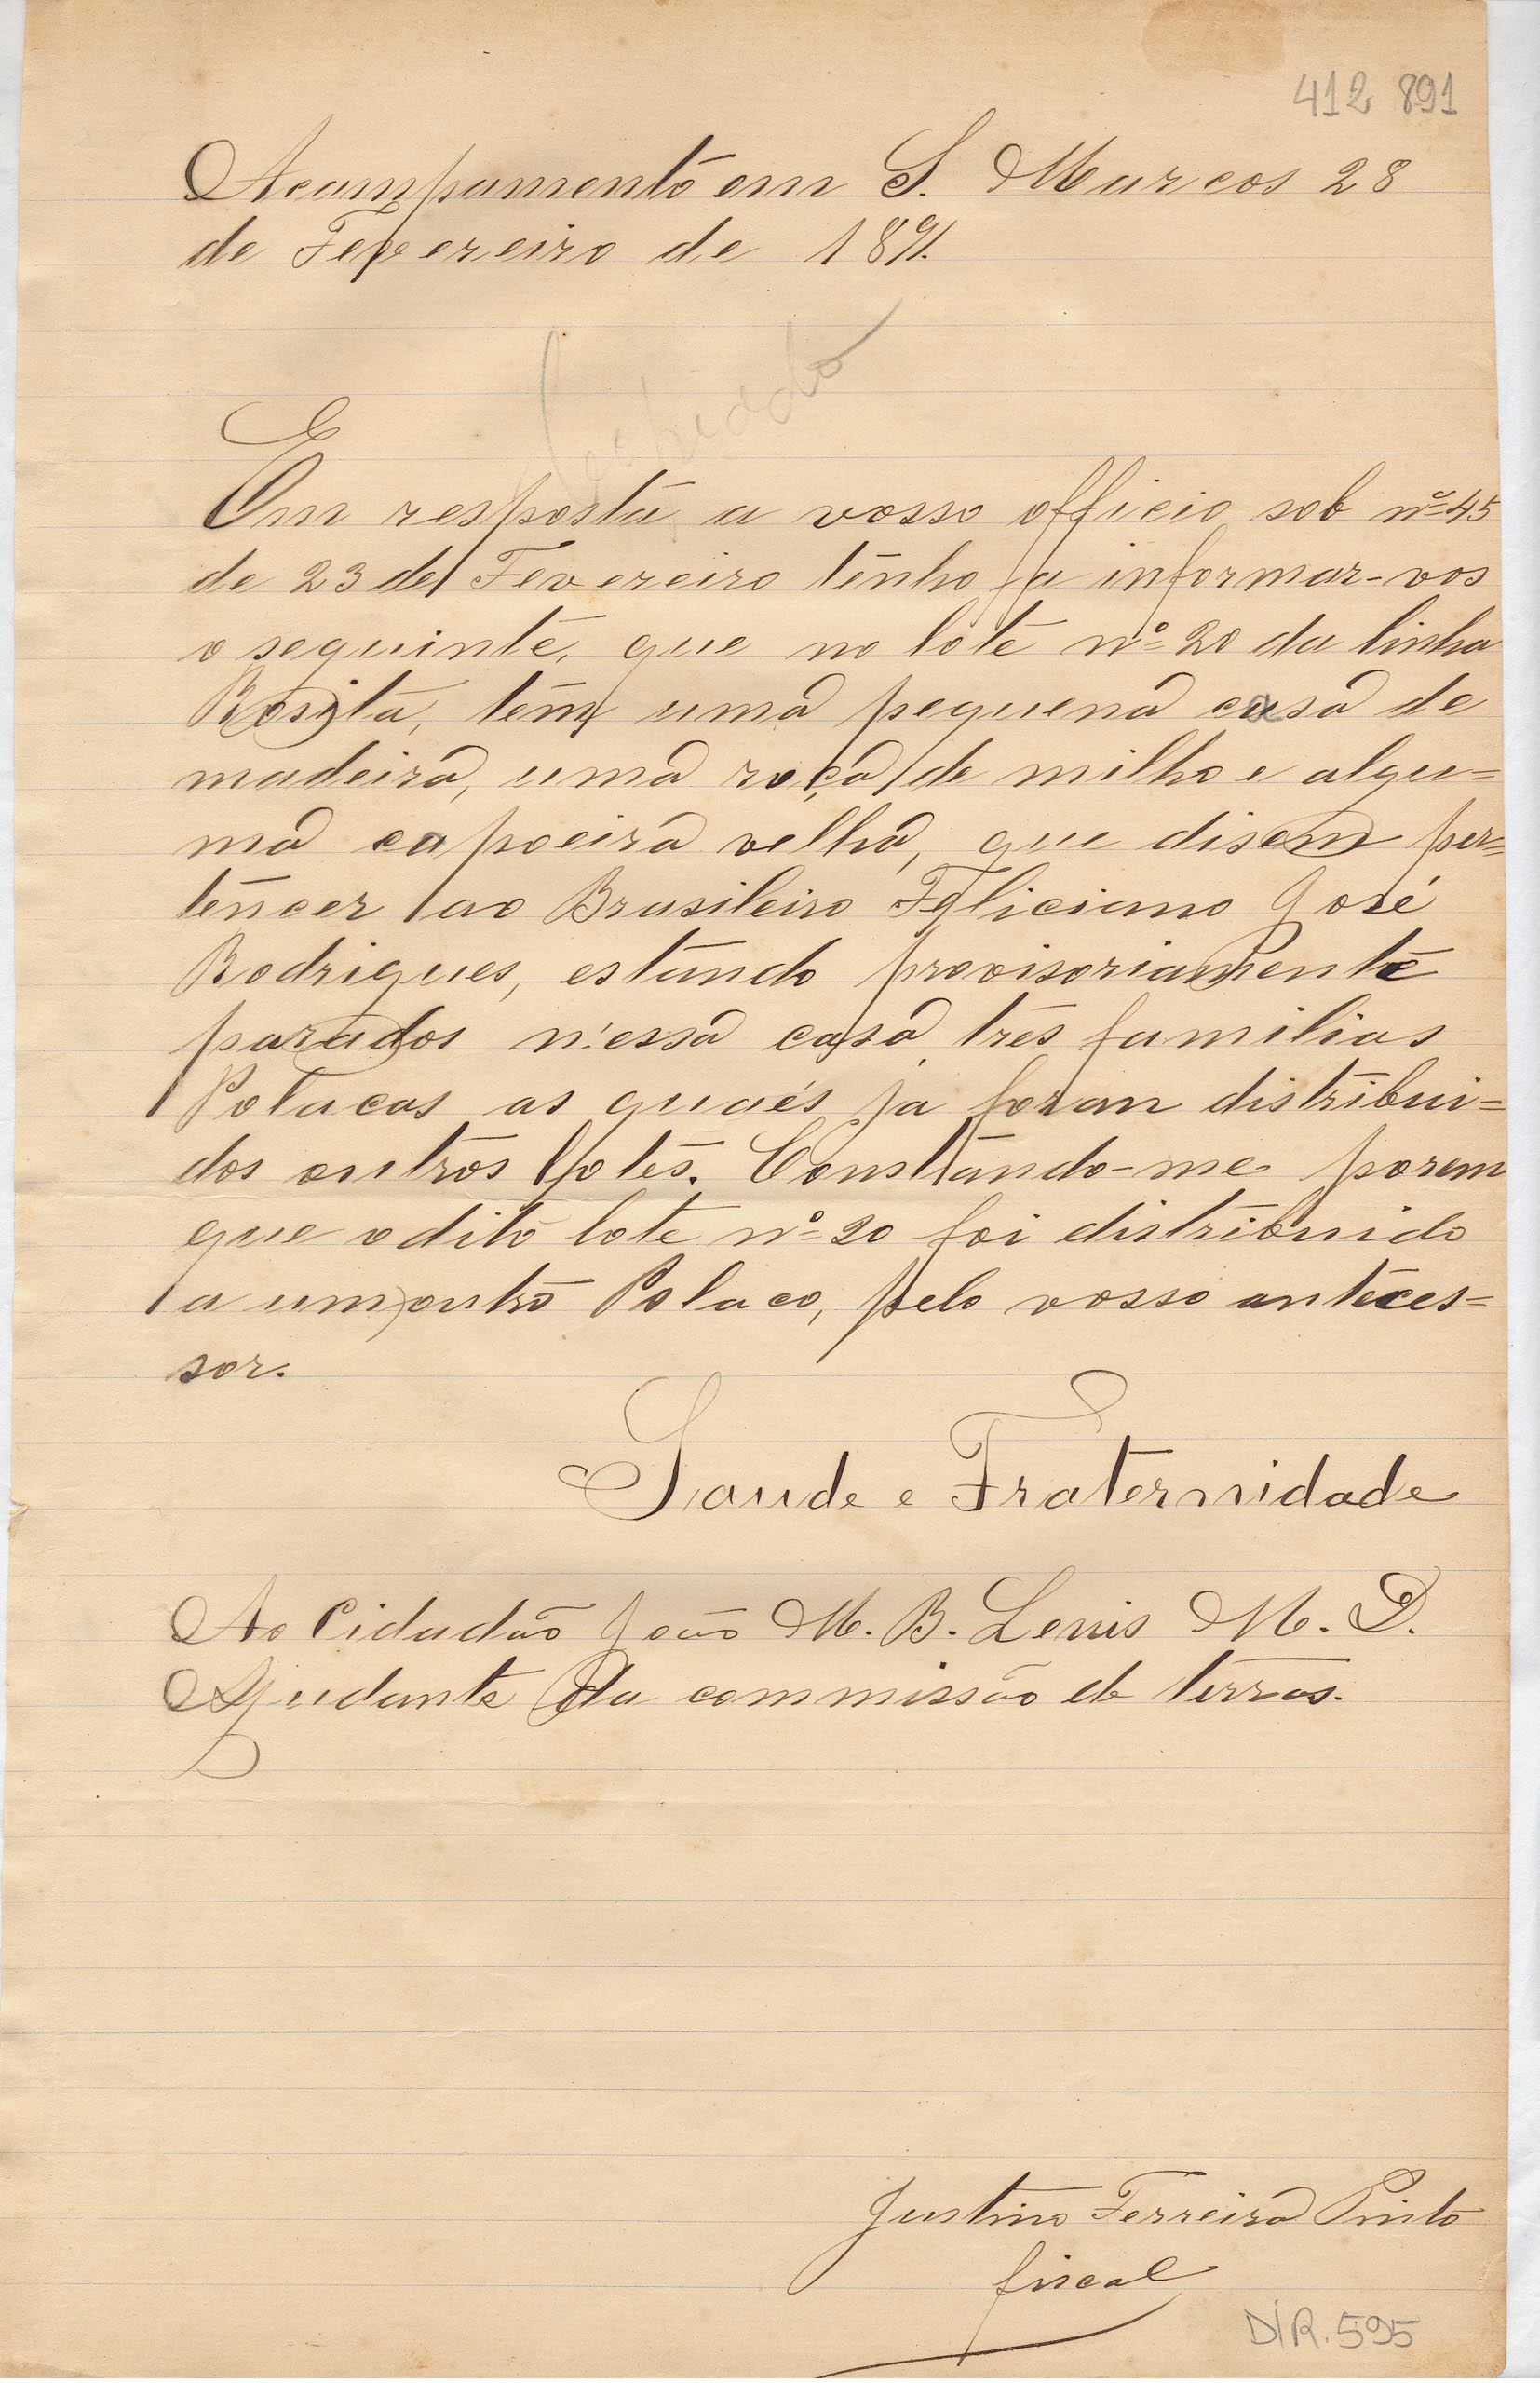 412 891
Acampamento em S. Marcos 28
de Fevereiro de 1891.
Em resposta a vosso officio sob nº 45
de 23 de Fevereiro tenho a informar-vos
o seguinte, que no lote nº 20 da linha
Rosita, tem uma pequena casa de
madeira, uma roça de milho e algu=
ma capoeira velha, que disem per=
tencer ao Brasileiro Feliciano José
Rodrigues, estando provisoriamente
parados n'essa casa três familias
Polacas as quaés ja foram distribui=
dos outros lotes. Constando-me porem
que o dito lote nº 20 foi distribuido
a um outro Polaco, pelo vosso anteces=
sor.
Saude e Fraternidade
Ao Cidadão João M. B. Lenis M. D.
Ajudante da commissão de terras.
Justino Ferreira Pinto
fiscal
DIR. 595